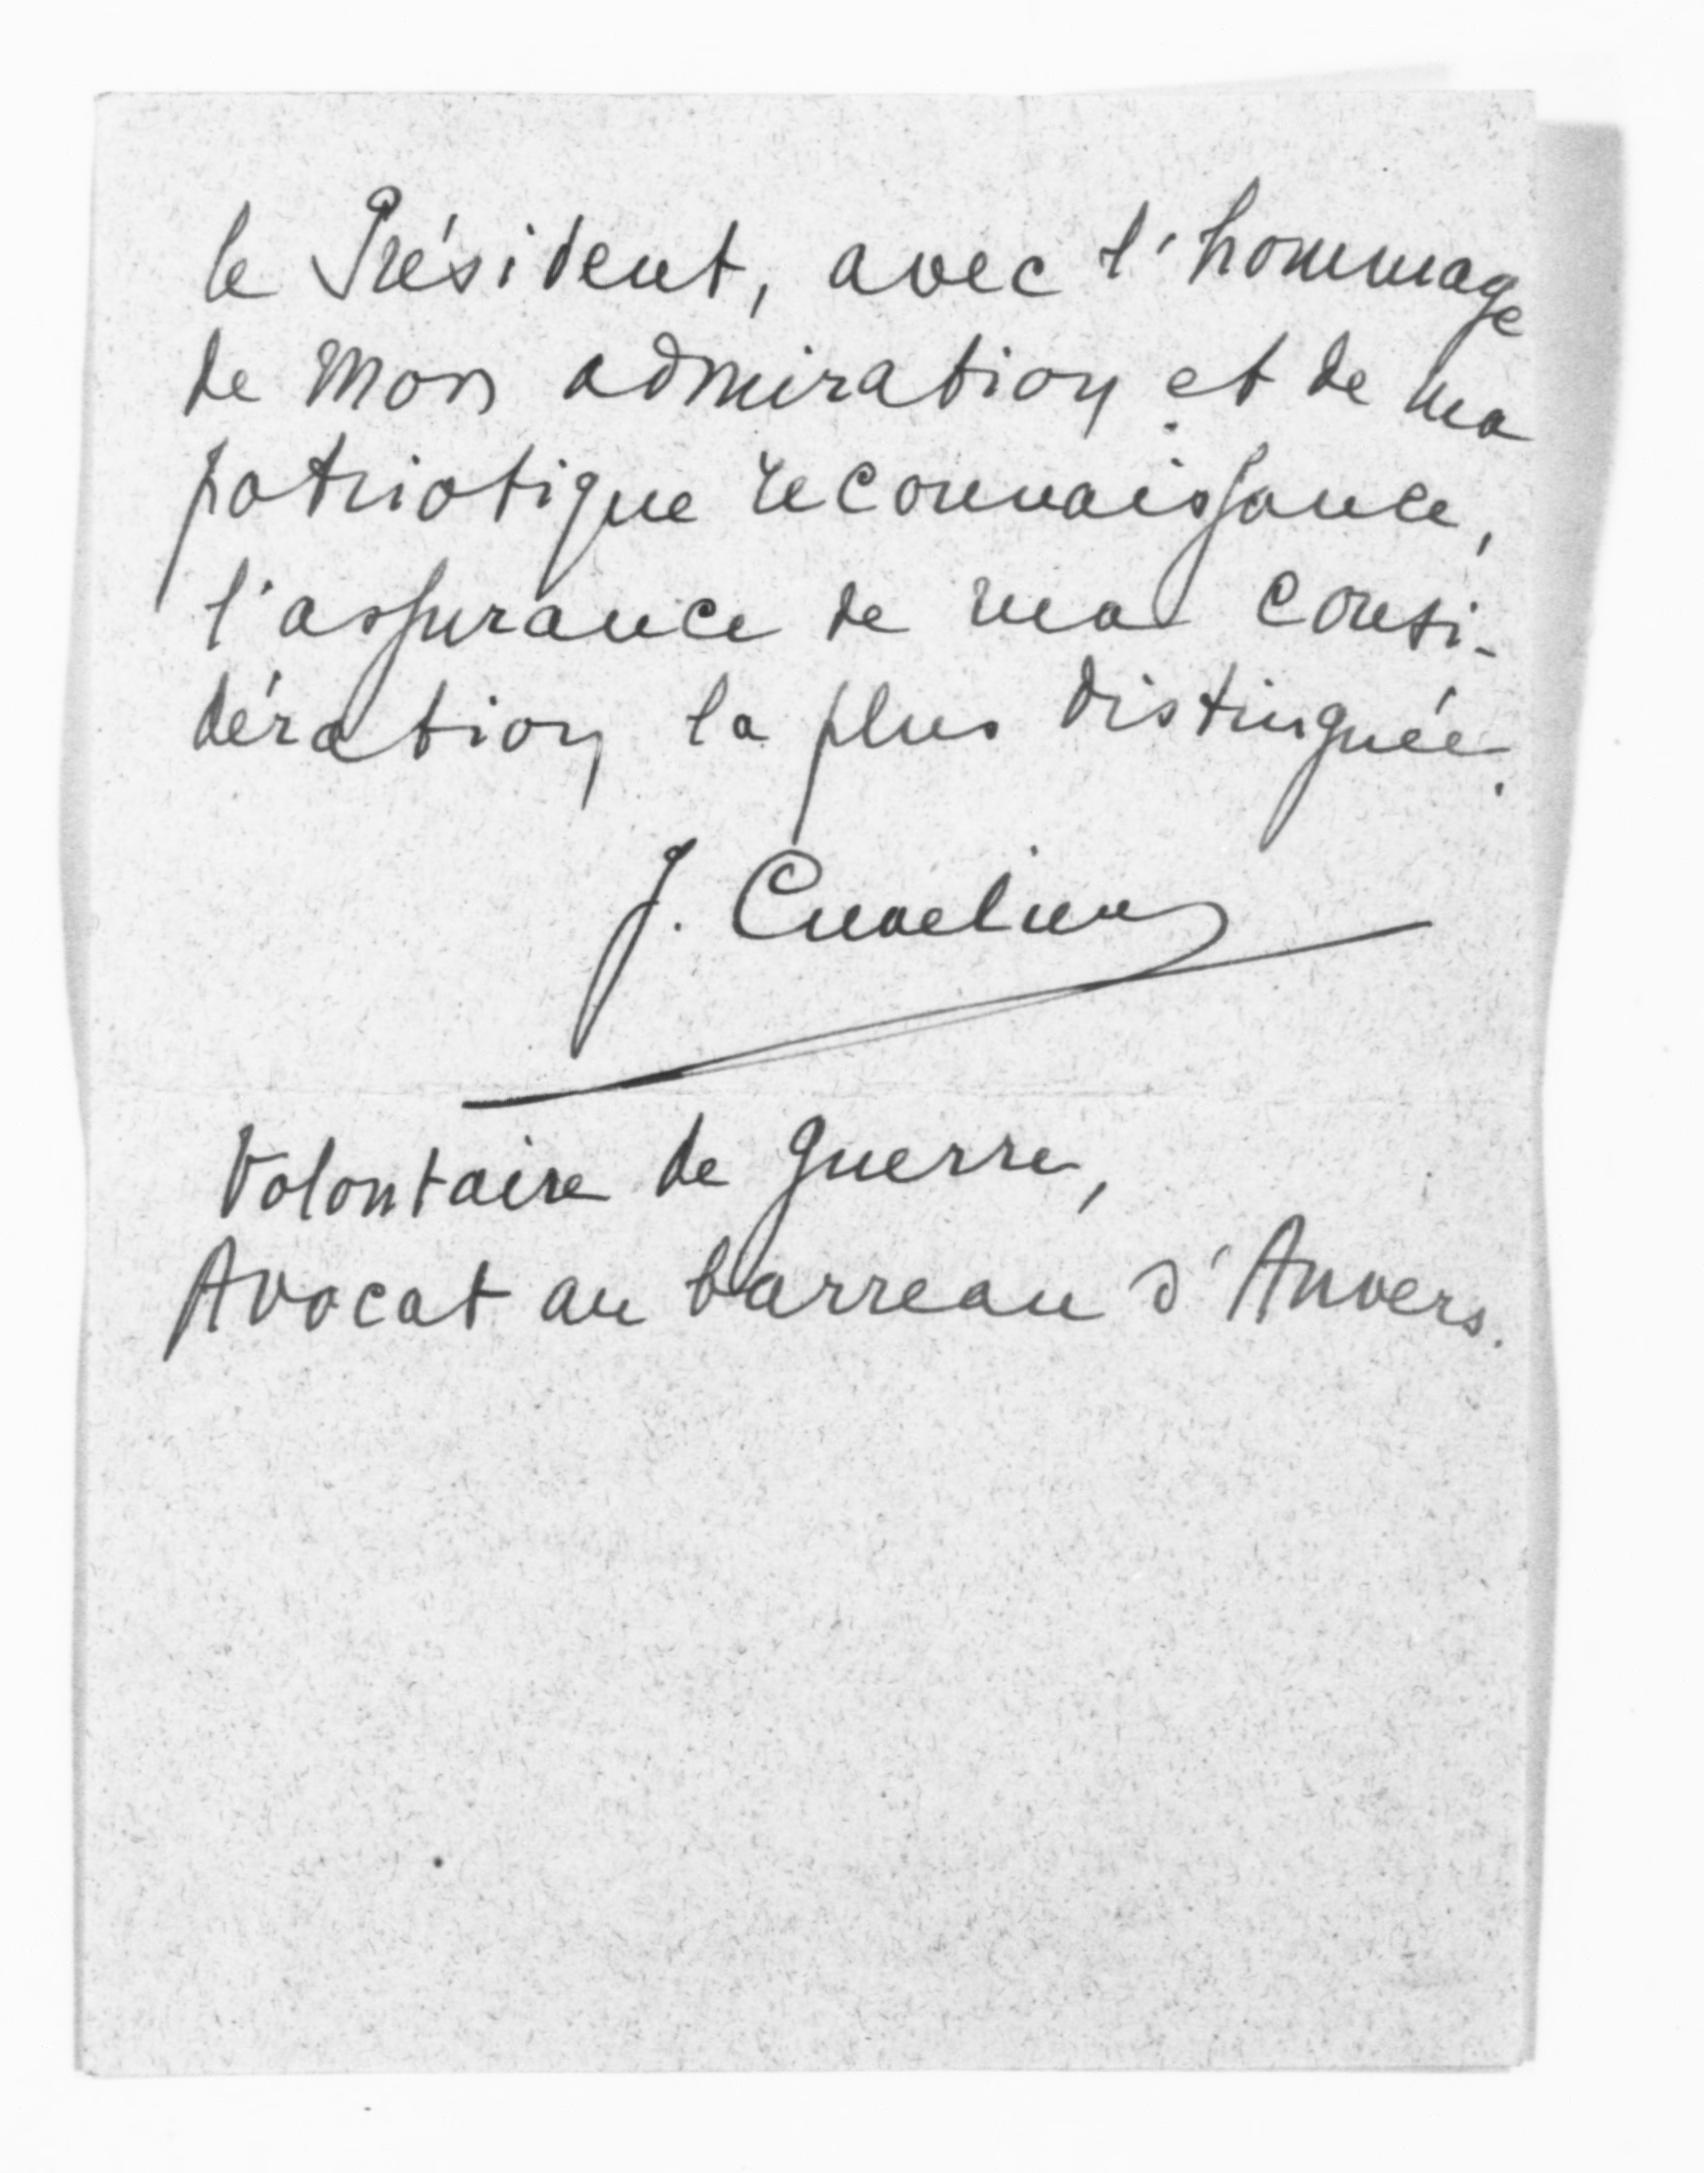 le Président, avec l'hommage
de mon admiration et de ma
patriotique reconnaissance,
l'assurance de ma consi-
dération la plus distinguée.
J. Cuvelier
Volontaire de guerre,
Avocat au barreau d'Anvers.